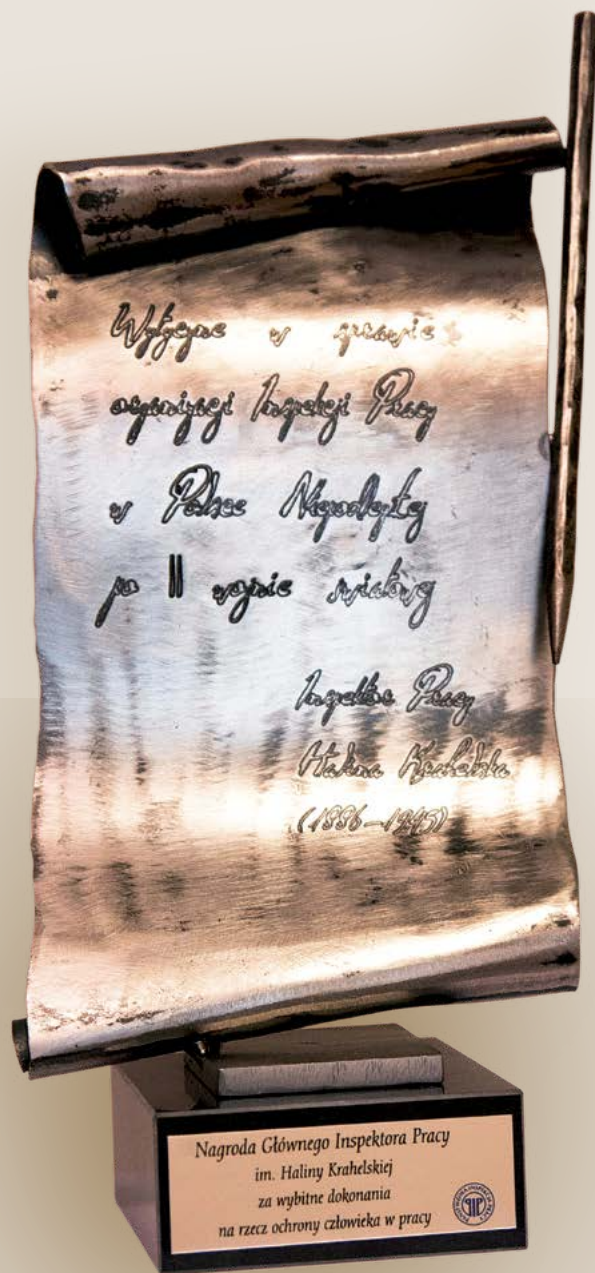 Wytyczne w sprawie
organizacji Inspekcji Pracy
w Polsce Niepodległej
po II wojnie światowej
Inspektor Pracy
Halina Krahelska
(1886–1945)
Nagroda Głównego Inspektora Pracy
im. Haliny Krahelskiej
za wybitne dokonania
na rzecz ochrony człowieka w pracy
PAŃSTWOWA INSPEKCJA PRACY
PIP